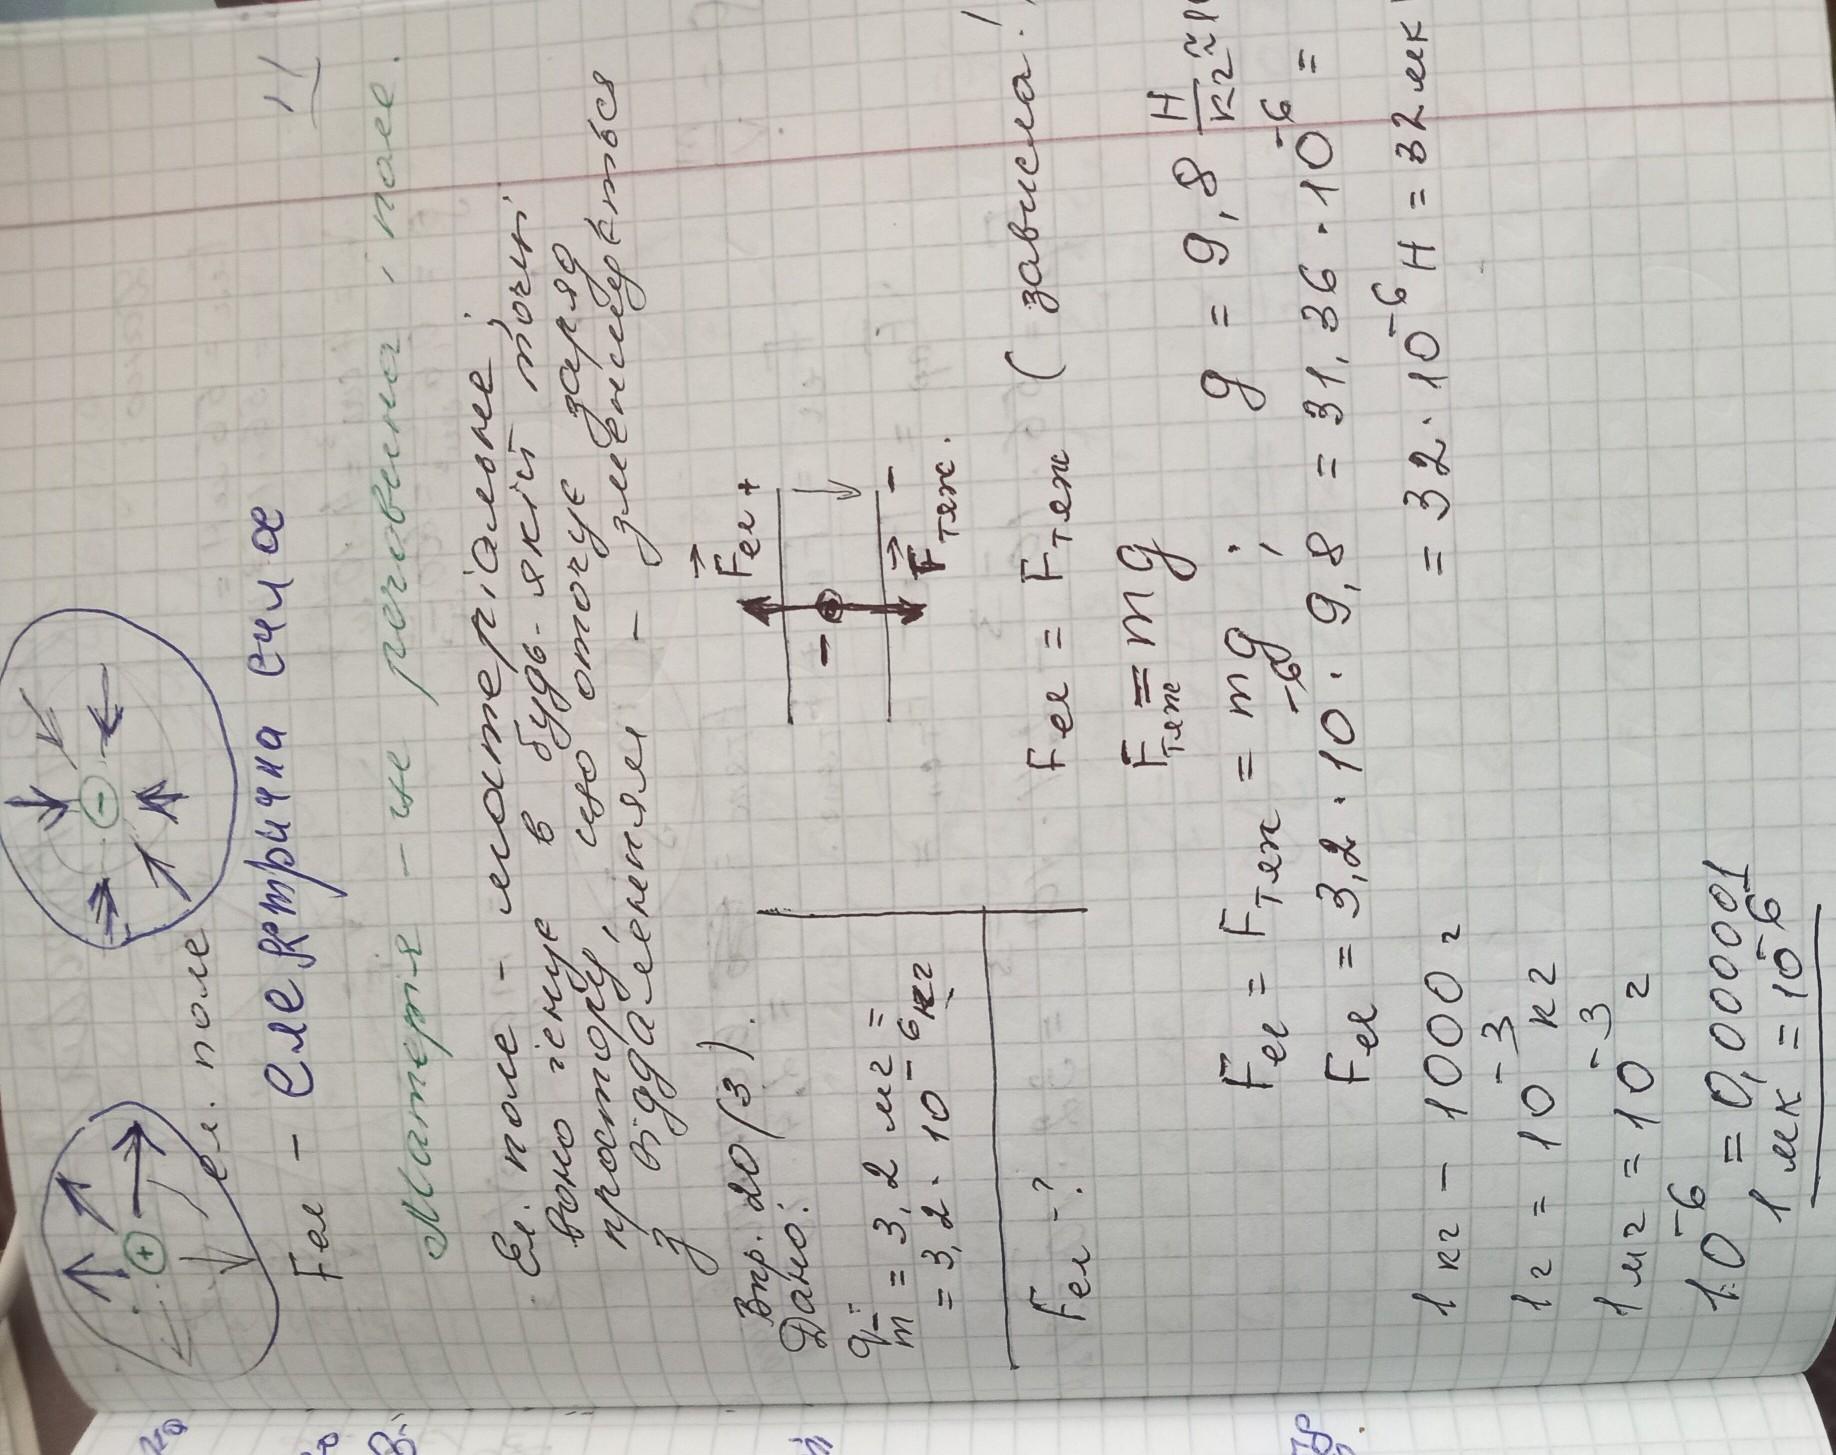 +
-
ел. поле
Fел - електрична сила
Матерія - це речовина і поле.
Ел. поле - матеріальне,
воно існує в будь-якій точці
простору, що оточує заряд
з віддаленням - зменшується
Впр. 20 (3).
Дано:
q-
m = 3,2 мг =
= 3,2 · 10⁻⁶ кг
Fел - ?
Fел +
-
Fтяж. -
Fел = Fтяж (зависла!
Fтяж = mg
Fел = Fтяж = mg ; g = 9,8 Н/кг ≈
Fел = 3,2 · 10⁻⁶ · 9,8 = 31,36 · 10⁻⁶ =
= 32 · 10⁻⁶ Н = 32 мк
1 кг - 1000 г
1 г = 10⁻³ кг
1 мг = 10⁻³ г
10⁻⁶ = 0,000001
1 мк = 10⁻⁶